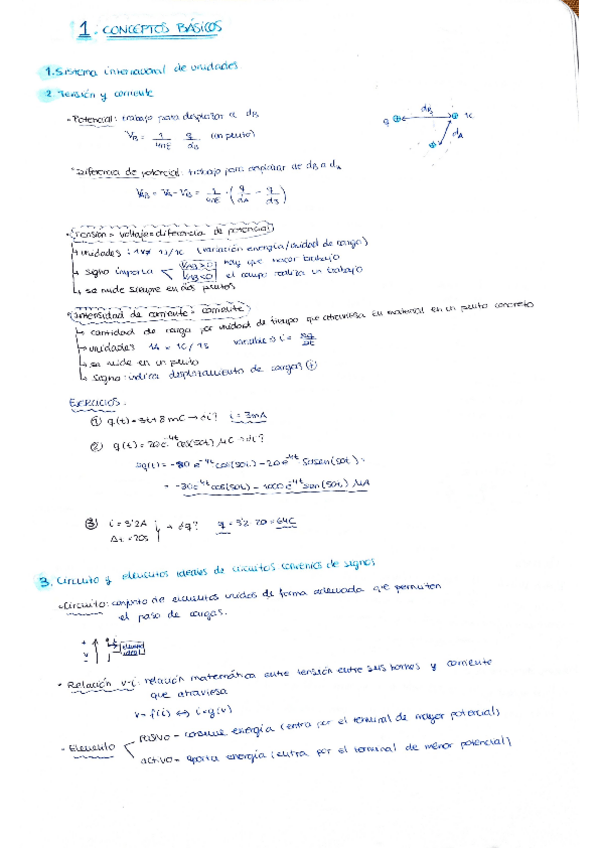 1. CONCEPTOS BÁSICOS
1. Sistema internacional de unidades
2. Tensión y corriente
- Potencial: trabajo para desplazar a dB
VB = 1/4πE q/dB (un punto)
q dB 1C
dA
- Diferencia de potencial: trabajo para desplazar de dB a dA
VAB = VA - VB = 1/4πE · (q/dA - q/dB)
- Tensión = voltaje = diferencia de potencial
unidades: 1V = 1J/1C (variación energía/unidad de carga)
signo importa VAB>0 hay que hacer trabajo
VAB<0 el campo realiza un trabajo
se mide siempre en dos puntos
Intensidad de corriente = corriente
cantidad de carga por unidad de tiempo que atraviesa un material en un punto concreto
unidades 1A = 1C/1s variable → i =
se mide en un punto
signo: indica desplazamiento de cargas +
EJERCICIOS:
① q(t) = 3t + 8 mC → di? i = 3mA
② q(t) = 20e-4t cos(50t) μC → di?
dq(t) = -80e-4t cos(50t) - 20e-4t 50sen(50t) =
= -80e-4t cos(50t) - 1000e-4t sen(50t) μA
③ i = 3'2A → dq? q = 3'2·20 = 64C
Δt = 20s
3. Circuito y elementos ideales de circuitos convenios de signos
- Circuito: conjunto de elementos unidos de forma adecuada que permiten
el paso de cargas.
elemento ideal
- Relación v-i: relación matemática entre tensión entre sus bornes y corriente
que atraviesa
v = f(i) ↔ i = g(v)
- Elemento pasivo = consume energía (entra por el terminal de mayor potencial)
activo = aporta energía (entra por el terminal de menor potencial)